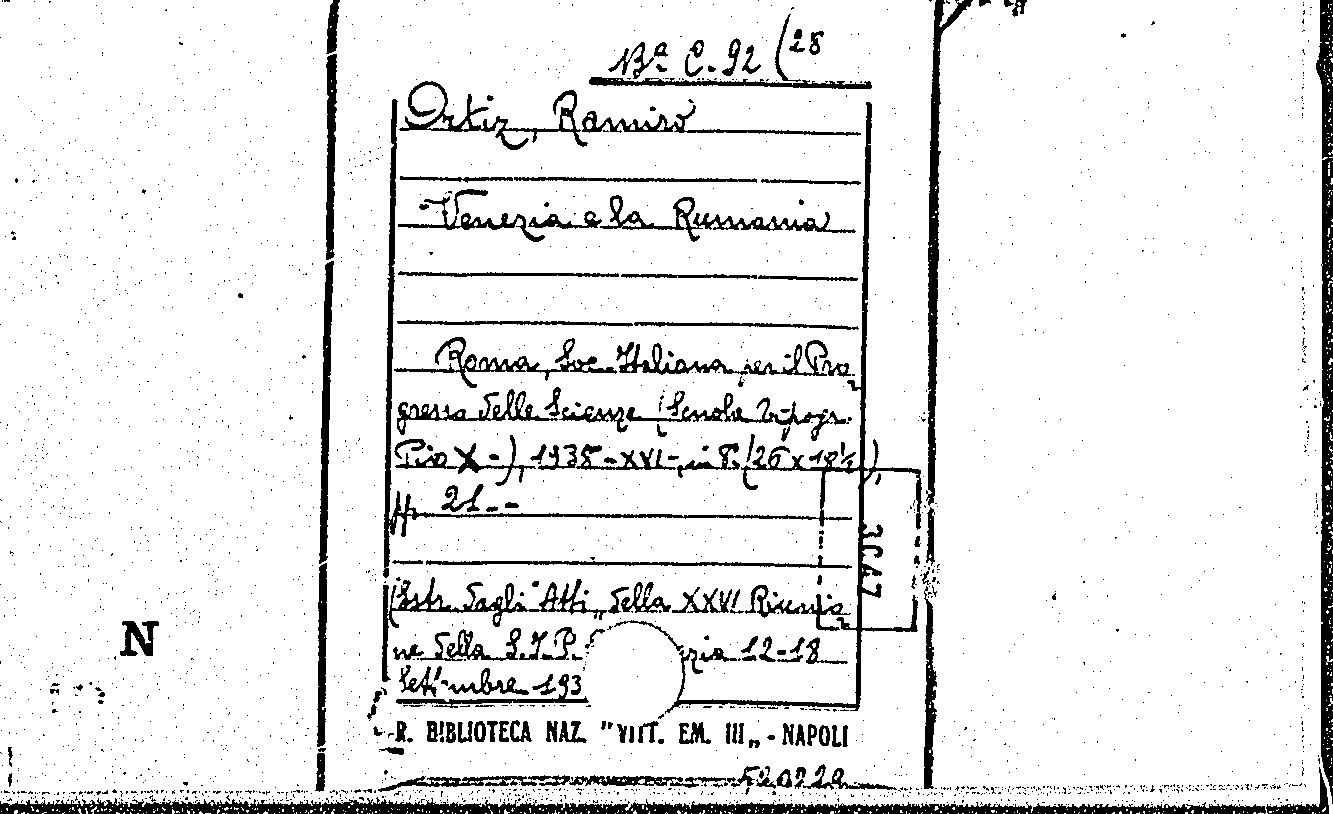 Bª C. 92 (28
Ortiz, Ramiro
Venezia e la Rumania
Roma, Soc. Italiana per il Pro
gresso delle Scienze (Scuola tipogr.
Pio X -), 1938 - XVI -, in 8º (26 x 18½),
pp. 21 --
(Estr. dagli "Atti" della XXVI Riunio
ne della S.I.P.
12-18
Settembre 193
3047
N
R. BIBLIOTECA NAZ. "VITT. EM. III„ - NAPOLI